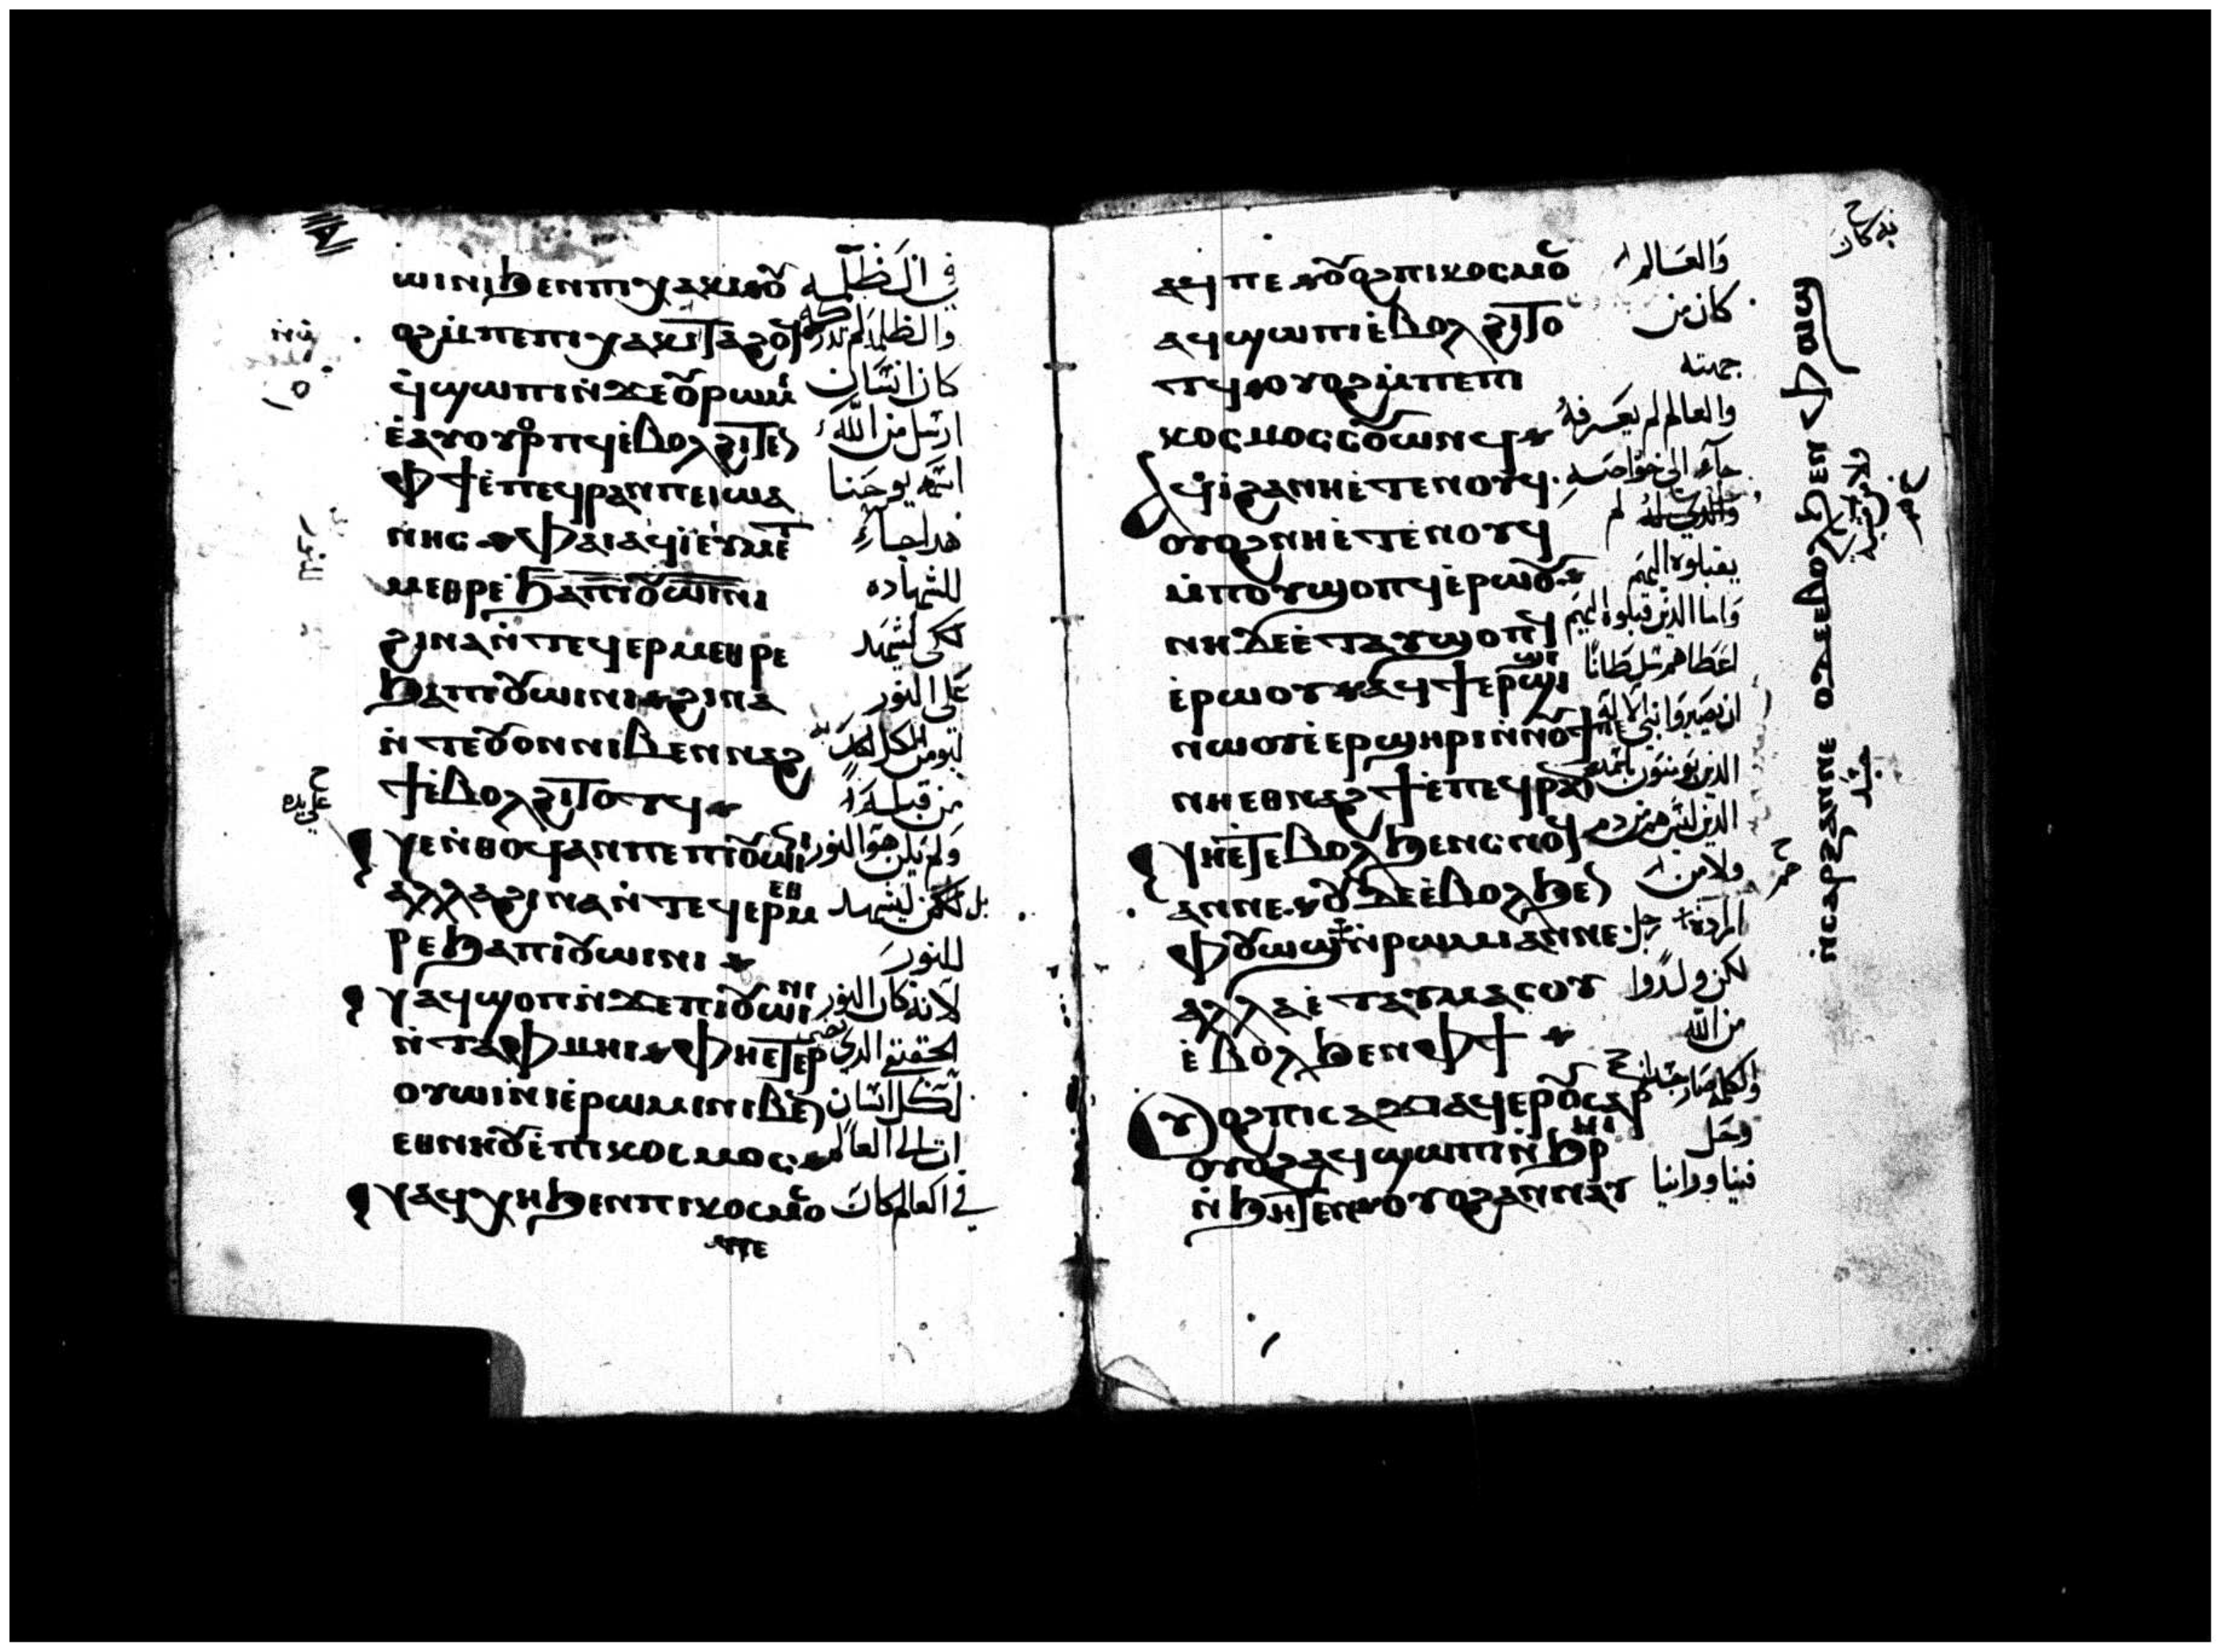 ϣⲓⲛⲓϧⲉⲛⲡⲓⲭⲁⲕⲓⲟⲩ في الظلمه
ⲟϩⲙ̀ⲡⲉⲡⲓⲭⲁⲕⲓⲧⲁϩⲟϥ والظلمه لم تدركه
ϥ̀ϣⲱⲡⲓⲛ̀ϫⲉⲟⲩⲣⲱⲙⲓ كان انسان
ⲉ̀ⲁⲩⲟⲩⲟⲣⲡϥⲉ̀ⲃⲟⲗϩⲓⲧⲉⲛ ارسل من الله
ⲫϯⲉ̀ⲡⲉϥⲣⲁⲛⲡⲉⲓⲱⲁ اسمه يوحنا
ⲛⲏⲥ ⲫⲁⲓⲁϥⲓ̀ⲉⲩⲙⲉⲧ هدا جاء
ⲙⲉⲑⲣⲉ ϧⲁⲡⲓⲟⲩⲱⲓⲛⲓ للشهاده
ϩⲓⲛⲁⲛ̀ⲧⲉϥⲉⲣⲙⲉⲑⲣⲉ لكي يشهد
ϧⲁⲡⲓⲟⲩⲱⲓⲛⲓ ϩⲓⲛⲁ على النور
ⲛ̀ⲧⲉⲟⲩⲟⲛⲛⲓⲃⲉⲛⲛⲁϩ ليومن الكل
ϯⲉ̀ⲃⲟⲗϩⲓⲧⲟⲧϥ من قبله
ⲛⲉⲛ̀ⲑⲟϥⲁⲛⲡⲉⲡⲓⲟⲩⲱⲓⲛⲓ ولم يكن هو النور
ⲁⲗⲗⲁϩⲓⲛⲁⲛ̀ⲧⲉϥⲉⲣⲙⲉⲑ بل لكن ليشهد
ⲣⲉϧⲁⲡⲓⲟⲩⲱⲓⲛⲓ للنور
ⲛⲁϥϣⲟⲡⲛ̀ϫⲉⲡⲓⲟⲩⲱⲓⲛⲓ لانه كان النور
ⲛ̀ⲧⲁⲫⲙⲏⲓ ⲫⲏⲉⲧⲉⲣ الحقيقي الدي يضي
ⲟⲩⲱⲓⲛⲓⲉ̀ⲣⲱⲙⲓⲛⲓⲃⲉⲛ لكل انسان
ⲉⲑⲛⲏⲟⲩⲉ̀ⲡⲓⲕⲟⲥⲙⲟⲥ ات الى العالم
ⲛⲁϥⲭⲏϧⲉⲛⲡⲓⲕⲟⲥⲙⲟ في العالم كان
ⲁϥⲡⲉ ⲟⲩⲟϩⲡⲓⲕⲟⲥⲙⲟ والعالم
ⲁϥϣⲱⲡⲓⲉ̀ⲃⲟⲗϩⲓⲧⲟ كان من
ⲧϥ ⲟⲩⲟϩⲙ̀ⲡⲉⲡⲓ جهته
ⲕⲟⲥⲙⲟⲥⲥⲟⲩⲱⲛϥ والعالم لم يعرفه
ϥⲓ̀ϩⲁⲛⲏⲉ̀ⲧⲉⲛⲟⲩϥ جاء الى خواصه
ⲟⲩⲟϩⲛⲏⲉ̀ⲧⲉⲛⲟⲩϥ
ⲙ̀ⲡⲟⲩϣⲟⲡϥⲉ̀ⲣⲱⲟⲩ يقبلوه اليهم
ⲛⲏⲇⲉⲉ̀ⲧⲁⲩϣⲟⲡϥ واما الدين قبلوه اليهم
ⲉ̀ⲣⲱⲟⲩ ⲁϥϯⲉⲣϣⲓϣⲓ اعطاهم سلطانا
ⲛⲱⲟⲩⲉ̀ⲉⲣϣⲏⲣⲓⲛ̀ⲛⲟⲩϯ ان يصيروا بني الاله
ⲛⲏⲉⲑⲛⲁϩϯⲉ̀ⲡⲉϥⲣⲁⲛ الدين يومنون باسمه
ⲛⲏⲉ̀ⲧⲉⲃⲟⲗϧⲉⲛⲥⲛⲟϥ الدين ليس هم من دم
ⲁⲛⲛⲉ ⲟⲩⲇⲉⲉ̀ⲃⲟⲗϧⲉⲛ ولا من
ⲫⲟⲩⲱϣⲛ̀ⲣⲱⲙⲓⲁⲛⲛⲉ رجل
ⲁⲗⲗⲁⲉ̀ⲧⲁⲩⲙⲁⲥⲟⲩ لكن ولدوا
ⲉ̀ⲃⲟⲗϧⲉⲛⲫϯ من الله
ⲟⲩⲟϩⲡⲓⲥⲁϫⲓⲁϥⲉⲣⲟⲩⲥⲁⲣ والكلمه صار جسدا
ⲟⲩⲟϩⲁϥϣⲱⲡⲓⲛ̀ϧⲣⲏⲓ وحل
ⲛ̀ϧⲏⲧⲉⲛ ⲟⲩⲟϩⲁⲛⲛⲁⲩ فينا وراينا
ⲟⲩⲇⲉⲉⲃⲟⲗϧⲉⲛ ⲫⲟⲩⲱϣ
ⲛ̀ⲥⲁⲣⲝⲁⲛⲛⲉ
جسد